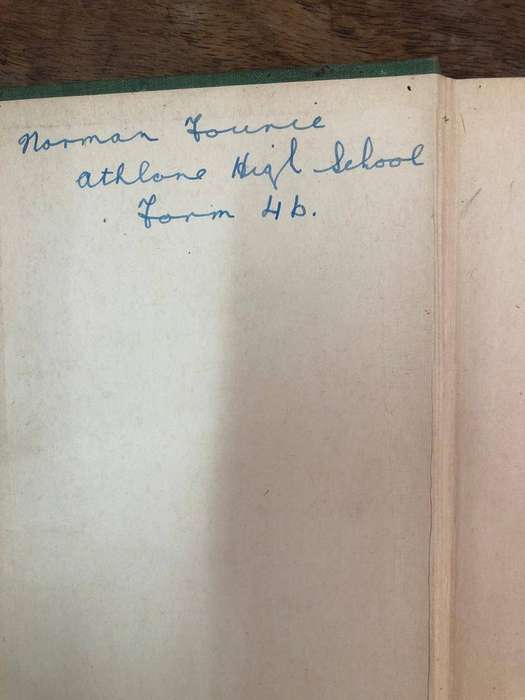 Norman Fourie
Athlone High School
Form 4b.